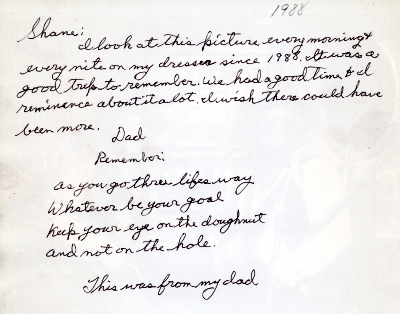 1988
Shane;
I look at this picture every morning &
every nite on my dresser since 1988. It was a
good trip to remember. We had a good time & I
reminence about it a lot. I wish there could have
been more.
Dad
Remember;
as you go three lifes way
Whatever be your goal
Keep your eye on the doughnut
and not on the hole.
This was from my dad